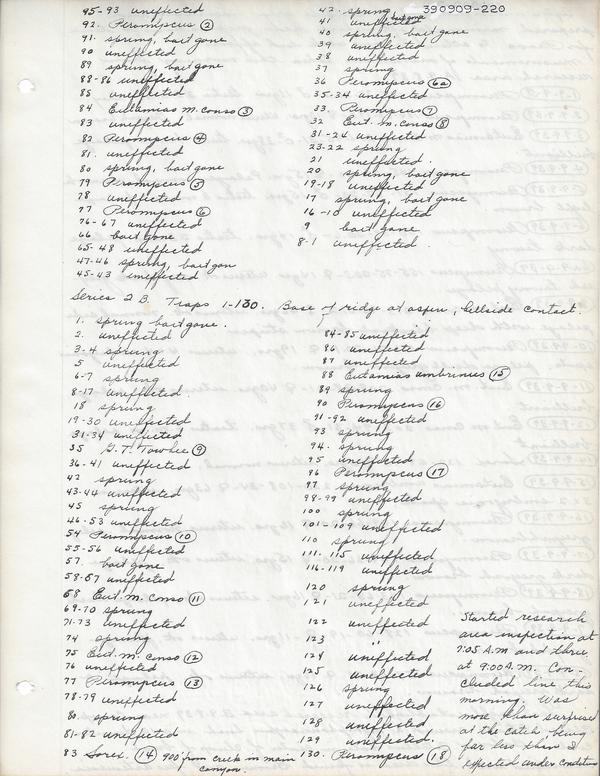 390909-220
95-93 uneffected
92. Peromyscus (2)
91. sprung, bait gone
90 uneffected
89 sprung, bait gone
88-86 uneffected
85 uneffected
84 Eutamias m. conso (3)
83 uneffected
82 Peromyscus (4)
81. uneffected
80 sprung, bait gone
79 Peromyscus (5)
78 uneffected
77 Peromyscus (6)
76-67 uneffected
66 bait gone
65-48 uneffected
47-46 sprung, bait gon
45-43 uneffected
42. sprung
41 uneffected bait gone
40 sprung, bait gone
39 uneffected
38 uneffected
37 sprung
36 Peromyscus (6a)
35-34 uneffected
33. Peromyscus (7)
32 Eut. m. conso (8)
31-24 uneffected
23-22 sprung
21 uneffected.
20 sprung, bait gone
19-18 uneffected
17 sprung, bait gone
16-10 uneffected
9 bait gone
8-1 uneffected.
Series 2 B. Traps 1-130. Base of ridge at aspen, hillside contact.
1. sprung bait gone.
2. uneffected
3-4 sprung
5 uneffected
6-7 sprung
8-17 uneffected.
18 sprung
19-30 uneffected
31-34 uneffected
35 G.T. Towhee (9)
36-41 uneffected
42 sprung
43-44 uneffected
45 sprung
46-53 uneffected
54 Peromyscus (10)
55-56 uneffected
57. bait gone
58-67 uneffected
68 Eut. m. conso (11)
69-70 sprung
71-73 uneffected
74 sprung
75 Eut. m. conso (12)
76 uneffected
77 Peromyscus (13)
78-79 uneffected
80. sprung
81-82 uneffected
83 Sorex. (14) 900' from creek in main canyon.
84-85 uneffected
86 uneffected
87 uneffected
88 Eutamias umbrinus (15)
89 sprung
90 Peromyscus (16)
91-92 uneffected
93 sprung
94. sprung
95 uneffected
96 Peromyscus (17)
97 sprung
98-99 uneffected
100 sprung
101-109 uneffected
110 sprung
111-115 uneffected
116-119 uneffected
120 sprung
121 uneffected
122 uneffected
123 "
124 uneffected
125 uneffected
126 sprung
127 uneffected
128 uneffected
129 uneffected.
130. Peromyscus (18)
Started research
area inspection at
7:05 A.M and three
at 9:00 A.M. Con-
cluded line this
morning. Was
more than surprised
at the catch being
far less than I
expected under conditions